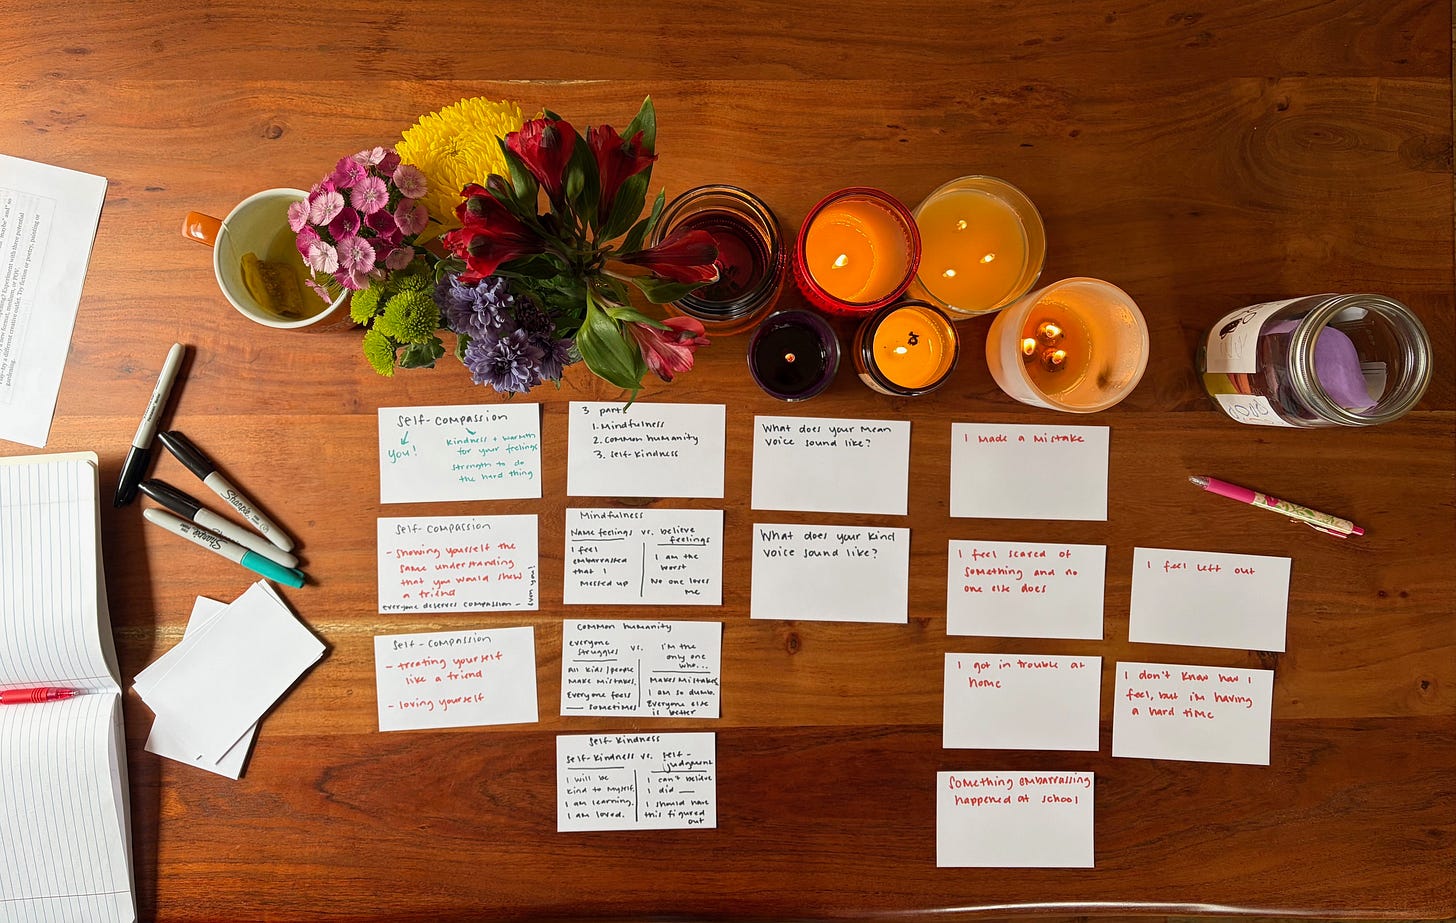 Self-Compassion
you!
kindness + warmth
for your feelings
strength to do
the hard thing
Self-Compassion
- showing yourself the
same understanding
that you would show
a friend
everyone deserves compassion -
even you!
Self-Compassion
- treating yourself
like a friend
- loving yourself
3 parts
1. Mindfulness
2. Common humanity
3. self-kindness
Mindfulness
Name feelings vs. believe
feelings
I feel
embarrassed
that I
messed up
I am the
worst
No one loves
me
Common humanity
everyone
struggles vs. I'm the
only one
who...
All kids/people
make mistakes.
Everyone feels
___ sometimes
Makes Mistakes
I am so dumb.
Everyone else
is better
Self-kindness
Self-kindness vs. self-
judgment
I will be
kind to myself.
I am learning.
I am loved.
I can't believe
I did ___
I should have
this figured
out
What does your mean
voice sound like?
What does your kind
voice sound like?
I made a mistake
I feel scared of
something and no
one else does
I got in trouble at
home
Something embarrassing
happened at school
I feel left out
I don't know how I
feel, but i'm having
a hard time
Sharpie
Sharpie
Sharpie
"maybe" and" so
Experiment with three potential
new format, medium, or POV.
try a different creative outlet. Try fiction or poetry, painting or
gardening.